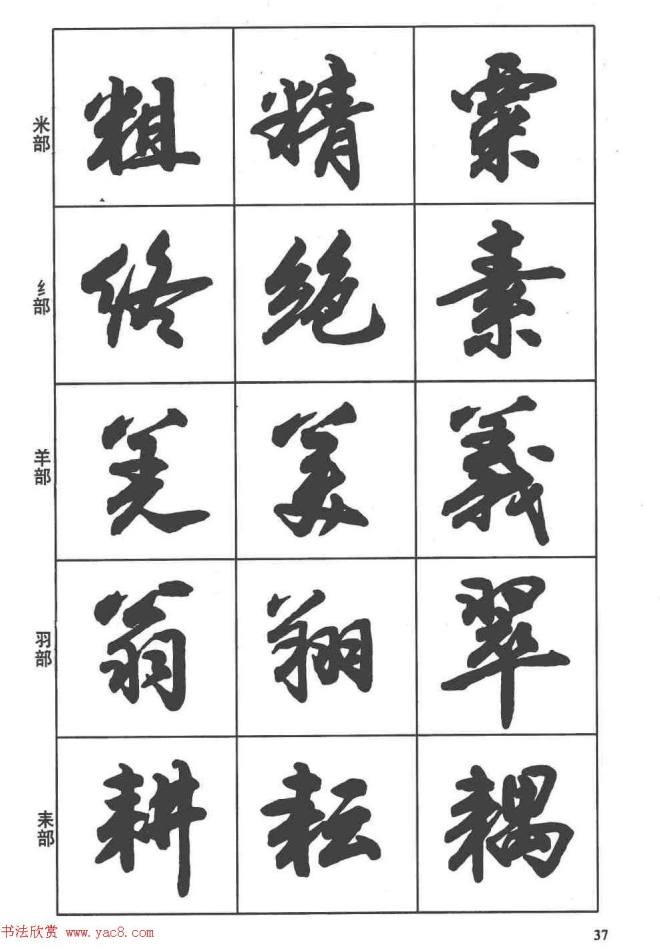 米部 粗 精 粟
纟部 终 绝 素
羊部 羌 美 義
羽部 翁 翔 翠
耒部 耕 耘 耦
书法欣赏 www.yac8.com
37